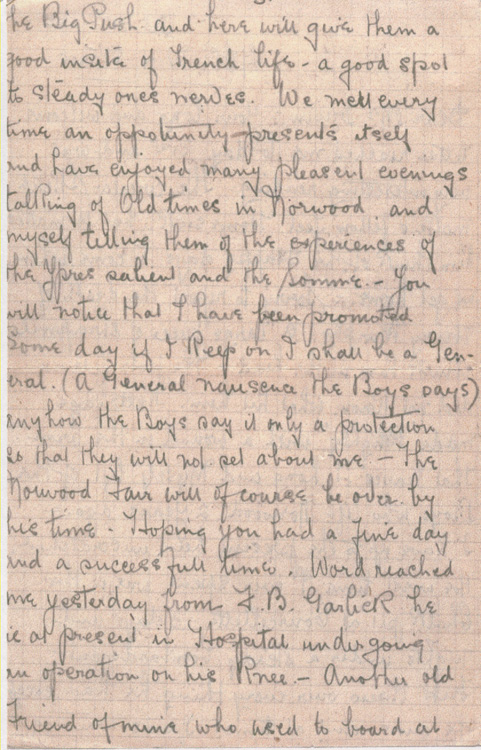 he Big Push. and here will give them a
good insite of Trench life - a good spot
to steady ones nerves. We meet every
time an oppotunity presents itself
and have enjoyed many pleasent evenings
talking of Old times in Norwood. and
myself telling them of the experiences of
the Ypres salient and the Somme. - You
will notice that I have been promoted
Some day if I Keep on I shall be a Gen-
eral. (A General nausence the Boys says)
anyhow the Boys say it only a protection
so that they will not set about me - The
Norwood Fair will of course be over by
his time - Hoping you had a fine day
and a successfull time. Word reached
me yesterday from F.B. Garlick he
is at present in Hospital undergoing
an operation on his Knee. - Another old
Friend of mine who used to board at